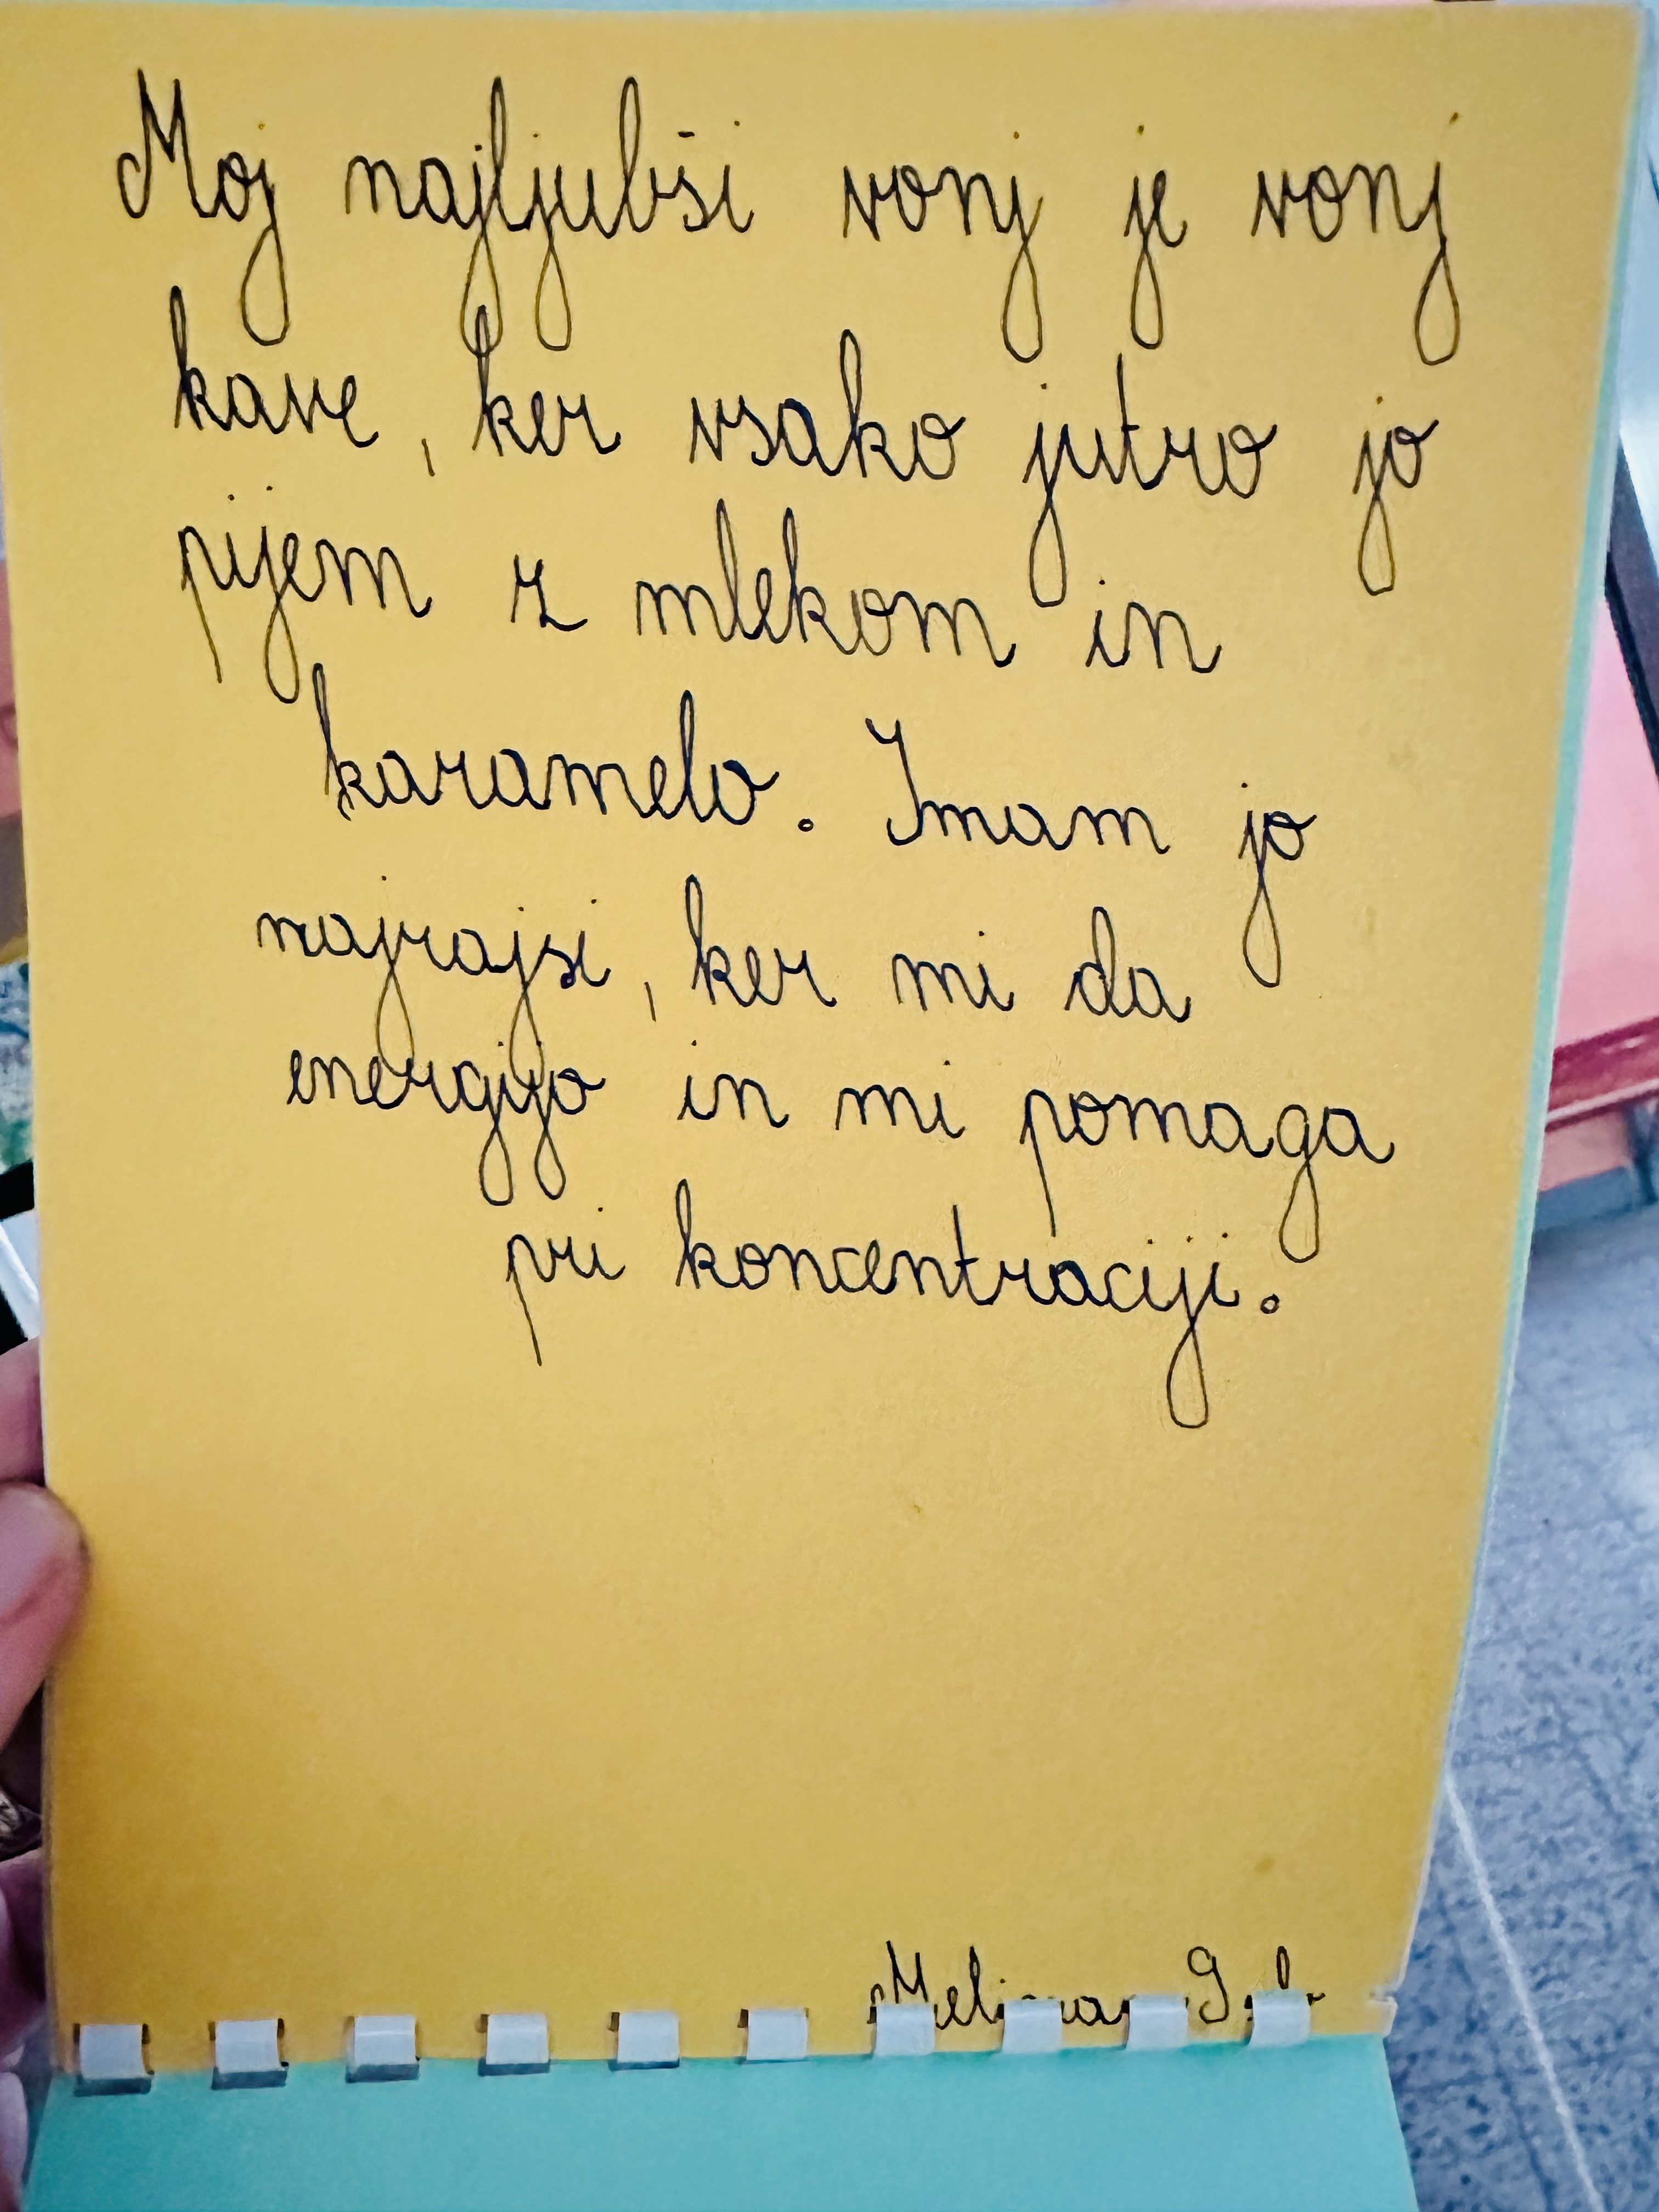 Moj najljubši vonj je vonj
kave, ker vsako jutro jo
pijem z mlekom in
karamelo. Imam jo
najrajsi, ker mi da
energijo in mi pomaga
pri koncentraciji.